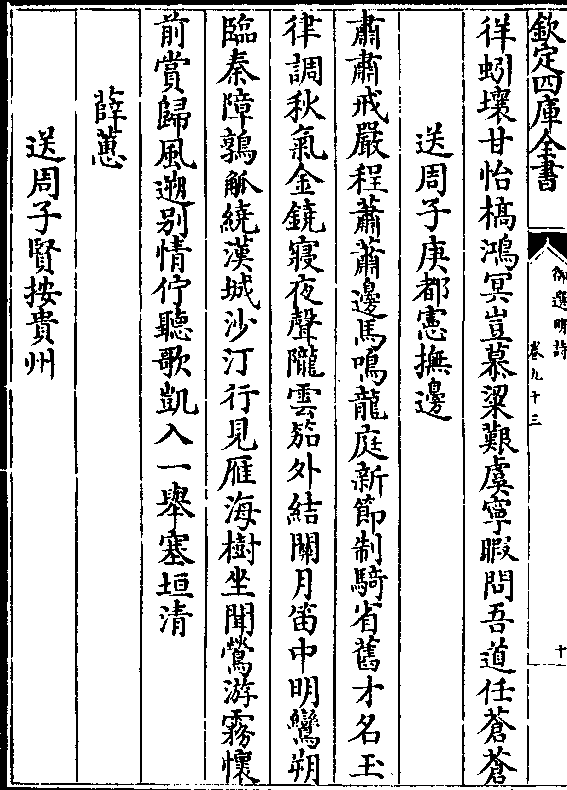 欽定四庫全書
御選明詩
卷九十三
十
徉蚓壤甘怡槁鴻冥豈慕粱艱虞寧暇問吾道任蒼蒼
送周子庚都憲撫邊
肅肅戒嚴程蕭蕭邊馬鳴龍庭新節制騎省舊才名玉
律調秋氣金鐃寢夜聲隴雲笳外結關月笛中明鸞朔
臨秦障鶉觚繞漢城沙汀行見雁海樹坐聞鶯游霧懷
前賞歸風遡别情佇聽歌凱入一舉塞垣清
薛蕙
送周子賢按貴州